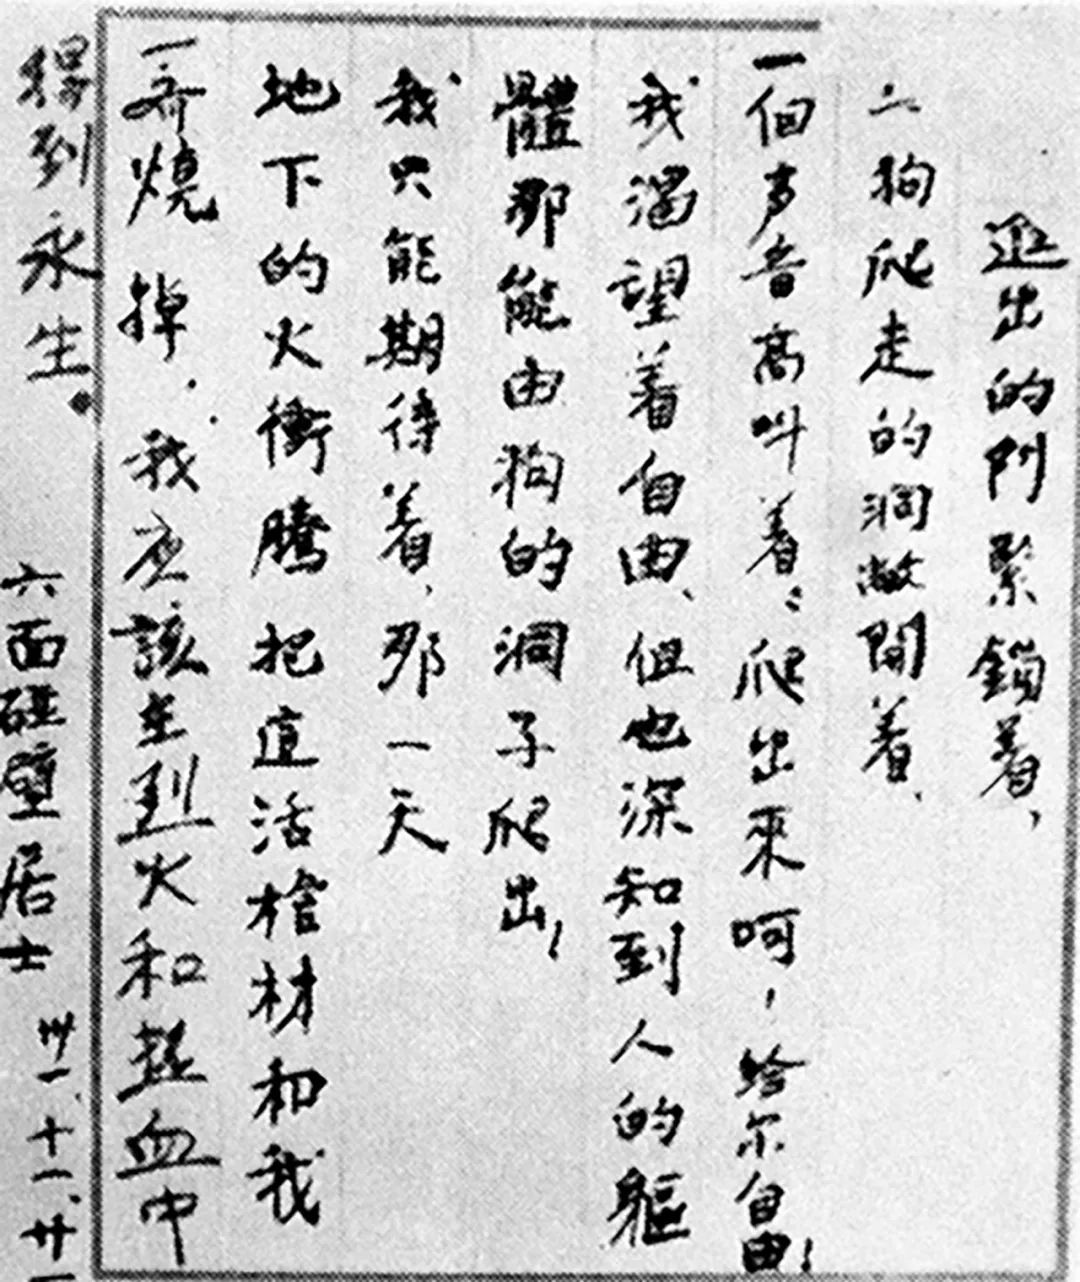 進出的門緊鎖着、
狗爬走的洞敞開着、
一個声音高叫着：爬出來呵，給尔自由！
我渴望着自由、但也深知到人的軀
體那能由狗的洞子爬出！
我只能期待着、那一天
地下的火衝騰把直活棺材和我
一齊燒掉．我应該在烈火和热血中
得到永生。
六面碰壁居士 卅一、十一、廿一